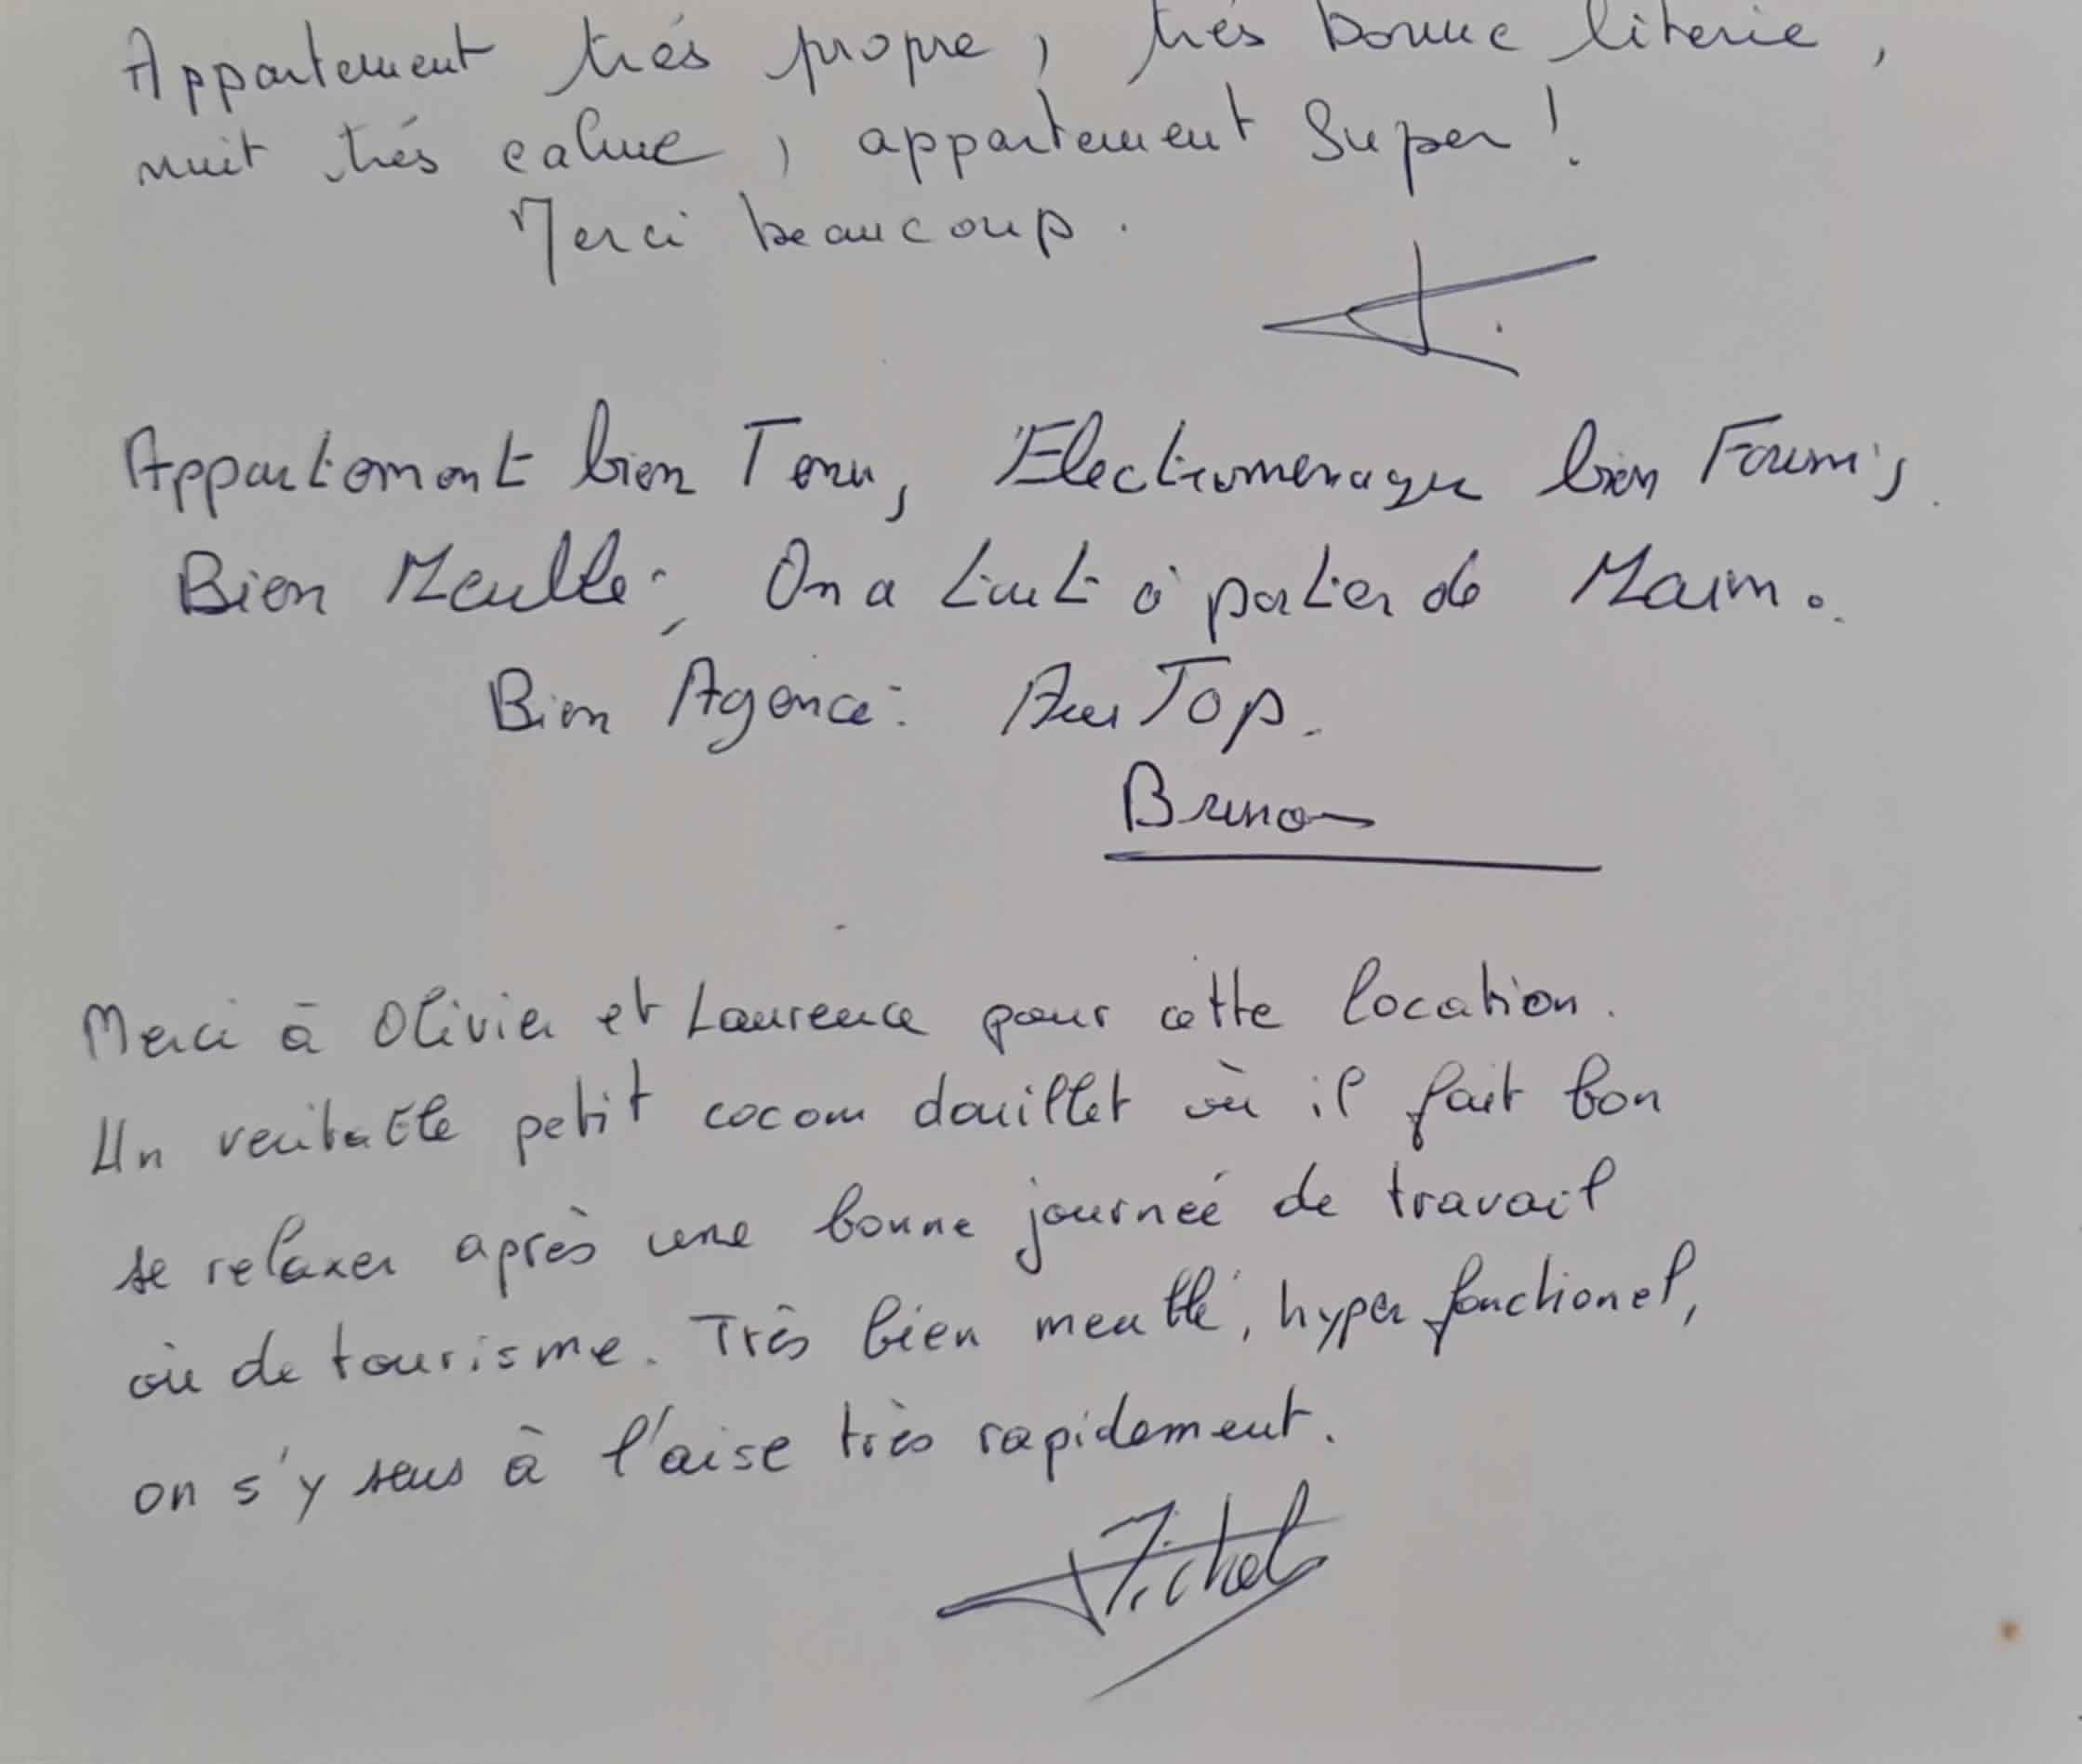 Appartement très propre, très bonne literie,
nuit très calme, appartement Super!
Merci beaucoup.
Appartement bien Tenu, Electromenager bien Fourni,
Bien Meublé, On a tout à porter de Main.
Bien Agencé: Au Top.
Bruno
Merci à Olivier et Laurence pour cette location.
Un veritable petit cocon douillet où il fait bon
se relaxer après une bonne journeé de travail
où de tourisme. Très bien meublé, hyper fonctionel,
on s'y sens à l'aise très rapidement.
Michel